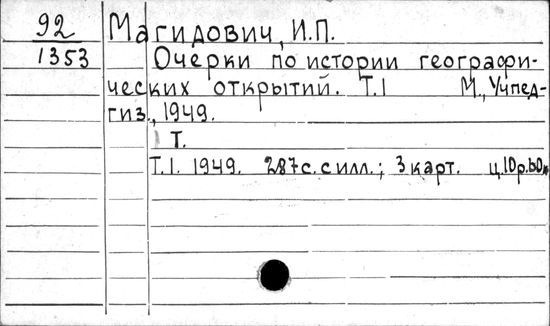 92 Магидович, И.П.
1353 Очерки по истории географи-
ческих открытий. Т.1 М., Учпед-
гиз., 1949.
Т.
Т.1. 1949. 287с. с илл.; 3 карт. ц.10р.60к